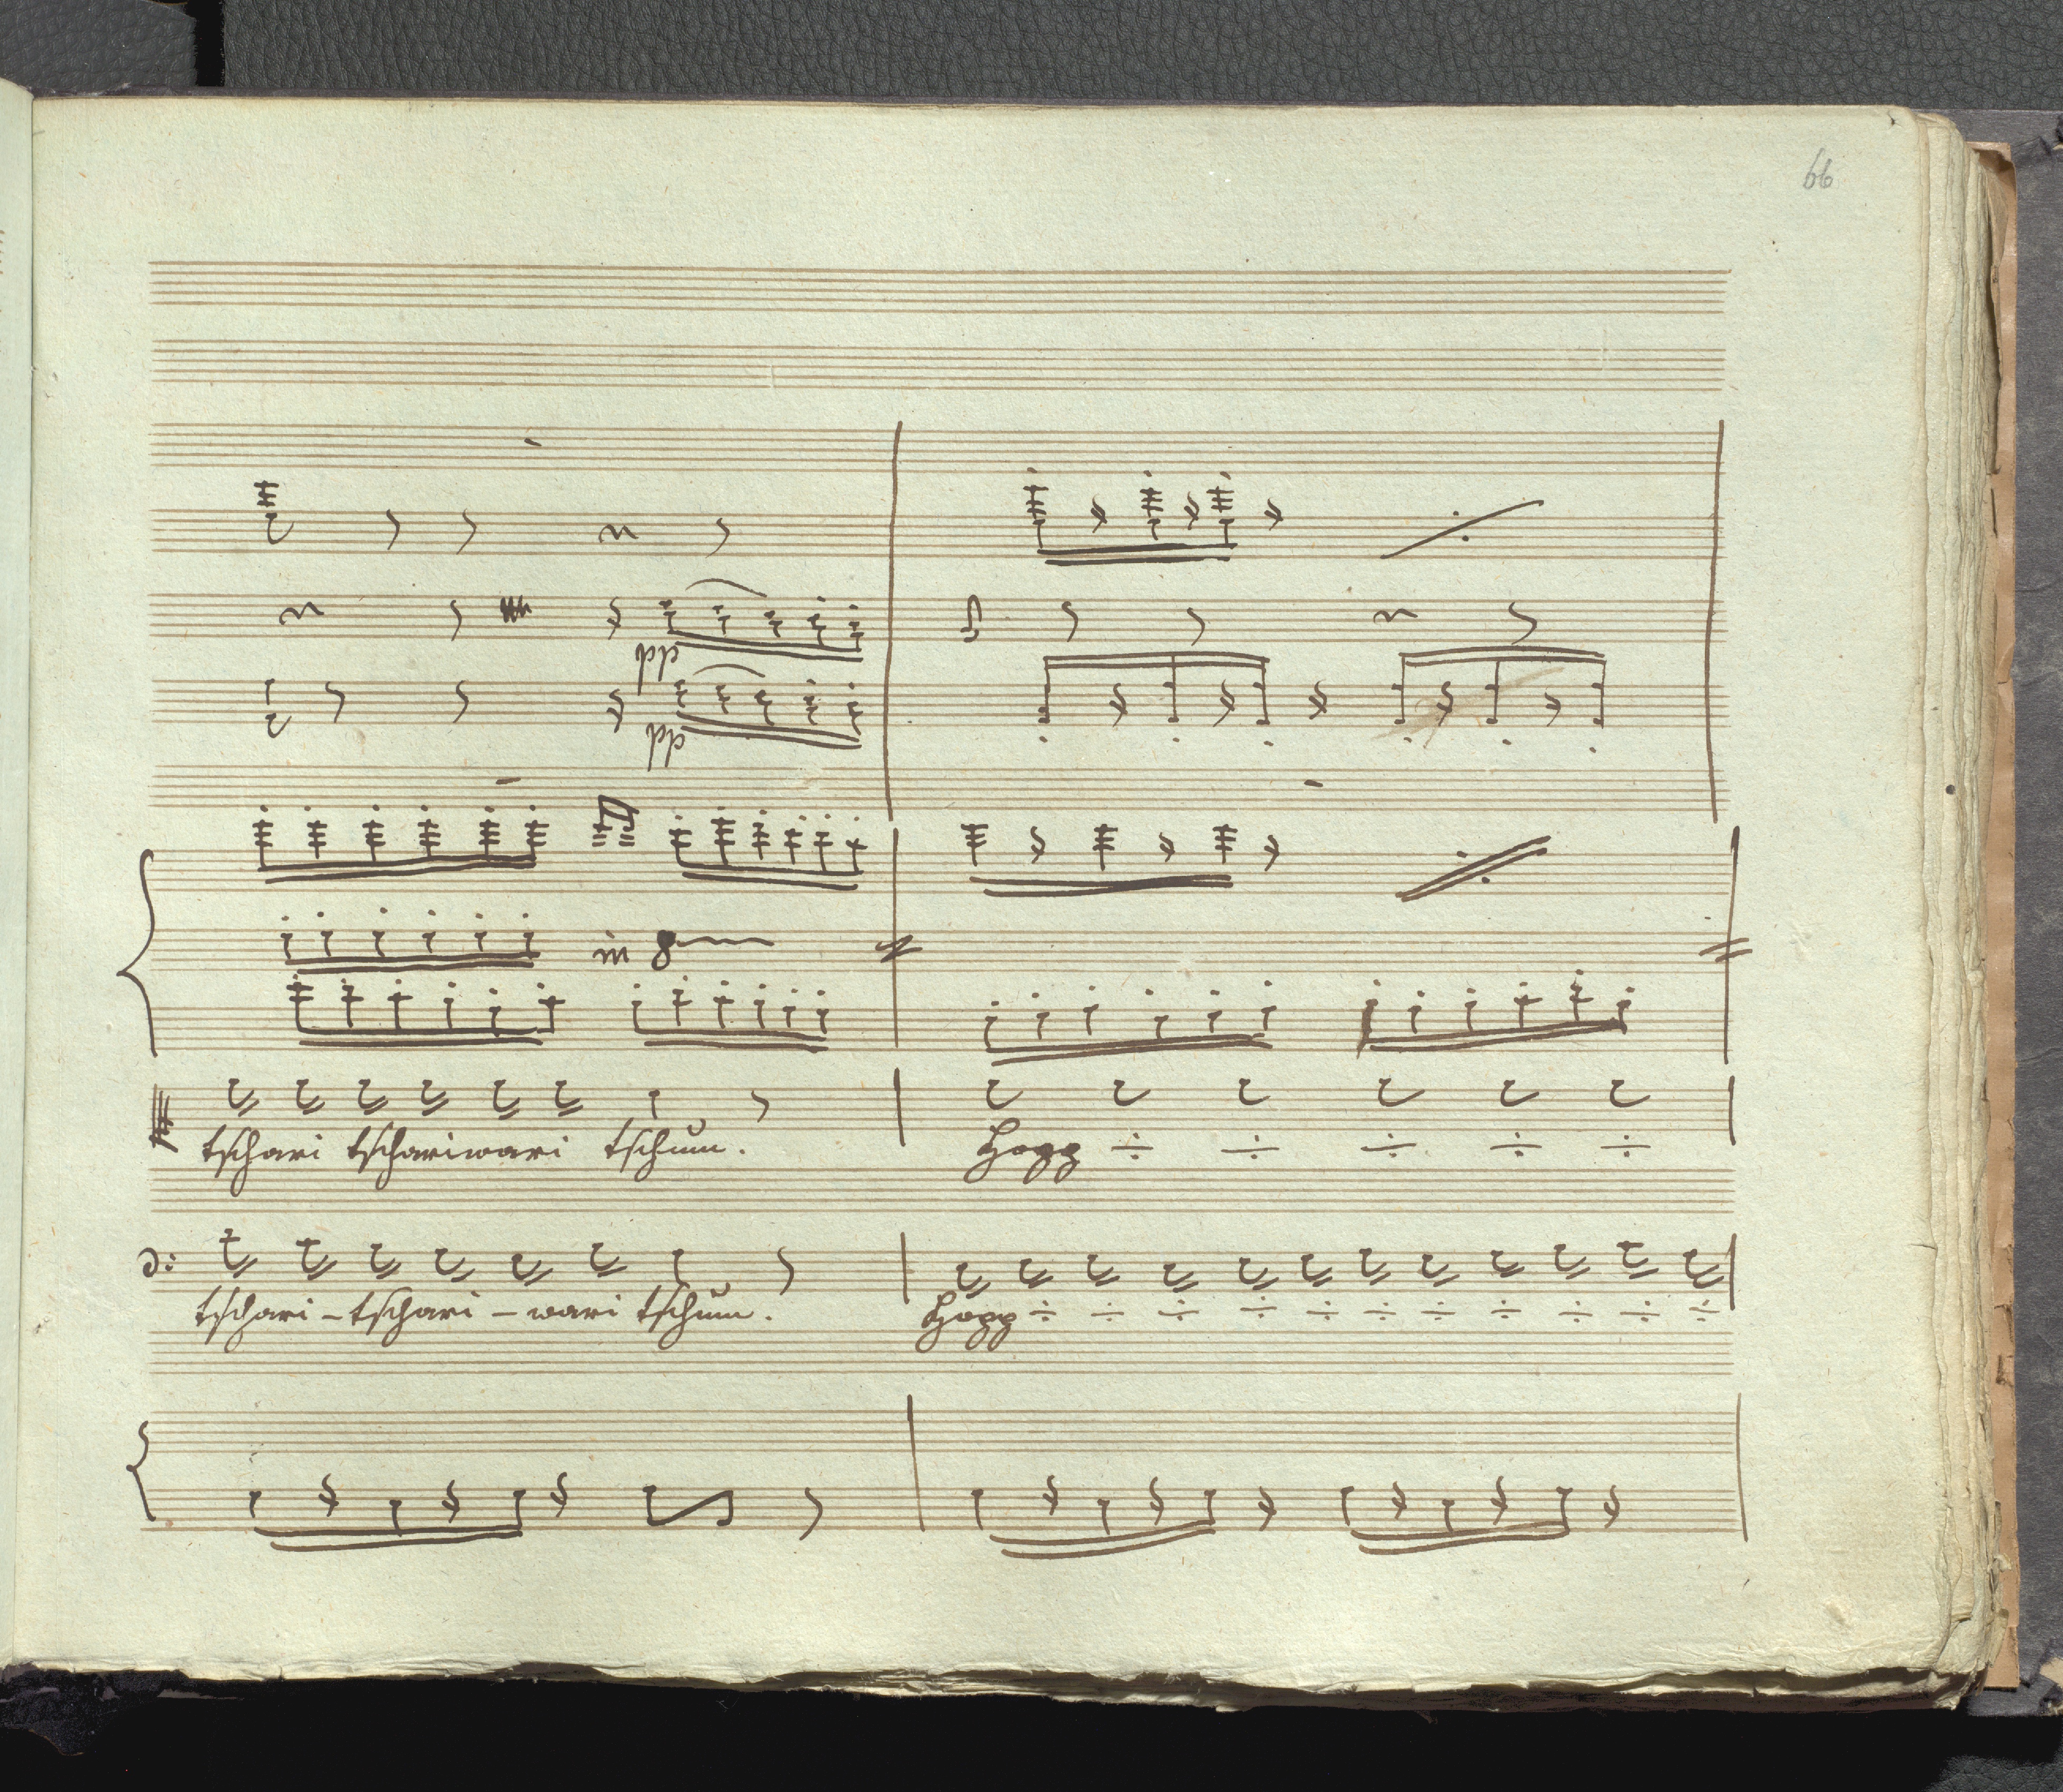 66
pp
pp
in 8
tschari tschariwari tschum.
Hopp
tschari - tschari - wari tschum.
Hopp